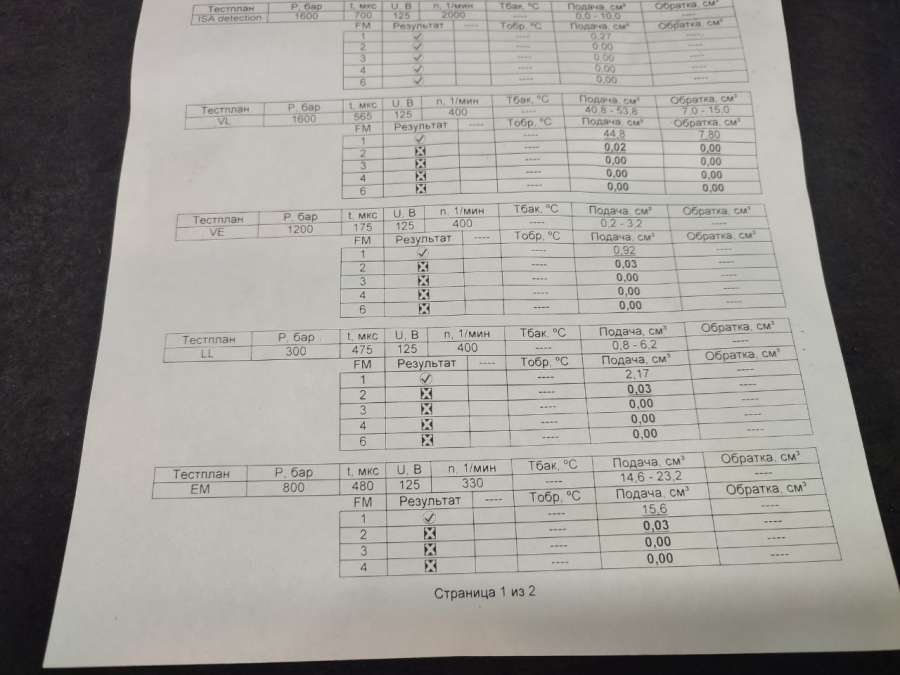 Тестплан P, бар t, мкс U, В n, 1/мин Тбак, ºC Подача, см³ Обратка, см³
ISA detection 1600 700 125 2000 ---- 0,0 - 10,0 ----
FM Результат ---- Тобр, ºC Подача, см³ Обратка, см³
1 ---- 0,27 ----
2 ---- 0,00 ----
3 ---- 0,00 ----
4 ---- 0,00 ----
6 ---- 0,00 ----
Тестплан P, бар t, мкс U, В n, 1/мин Тбак, ºC Подача, см³ Обратка, см³
VL 1600 565 125 400 ---- 40,8 - 53,8 7,0 - 15,0
FM Результат ---- Тобр, ºC Подача, см³ Обратка, см³
1 ---- 44,8 7,80
2 ---- 0,02 0,00
3 ---- 0,00 0,00
4 ---- 0,00 0,00
6 ---- 0,00 0,00
Тестплан P, бар t, мкс U, В n, 1/мин Тбак, ºC Подача, см³ Обратка, см³
VE 1200 175 125 400 ---- 0,2 - 3,2 ----
FM Результат ---- Тобр, ºC Подача, см³ Обратка, см³
1 ---- 0,92 ----
2 ---- 0,03 ----
3 ---- 0,00 ----
4 ---- 0,00 ----
6 ---- 0,00 ----
Тестплан P, бар t, мкс U, В n, 1/мин Тбак, ºC Подача, см³ Обратка, см³
LL 300 475 125 400 ---- 0,8 - 6,2 ----
FM Результат ---- Тобр, ºC Подача, см³ Обратка, см³
1 ---- 2,17 ----
2 ---- 0,03 ----
3 ---- 0,00 ----
4 ---- 0,00 ----
6 ---- 0,00 ----
Тестплан P, бар t, мкс U, В n, 1/мин Тбак, ºC Подача, см³ Обратка, см³
EM 800 480 125 330 ---- 14,6 - 23,2 ----
FM Результат ---- Тобр, ºC Подача, см³ Обратка, см³
1 ---- 15,6 ----
2 ---- 0,03 ----
3 ---- 0,00 ----
4 ---- 0,00 ----
Страница 1 из 2